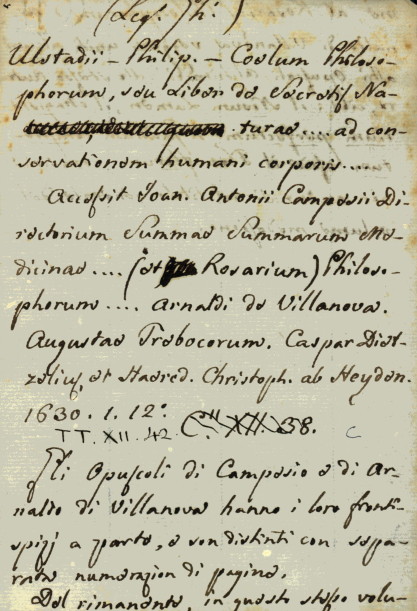 (Leg. Th.)
Ulstadii - Philip. - Coelum Philoso-
phorum, seu Liber de Secretis Na-
turae .... ad con-
servationem humani corporis ....
Accessit Joan. Antonii Campesii Di-
rectorium Summae Summarum Me-
dicinae .... (et Rosarium) Philoso-
phorum .... Arnaldi de Villanova.
Augustae Trebocorum. Caspar Diet-
zelius, et Haered. Christoph. ab Heyden.
1630. 1. 12.°
TT. XII. 42. C. XII. 38.
Gli Opuscoli di Campesio e di Ar-
naldo di Villanova hanno i loro fronti-
spizj a parte, e son distinti con sepa-
rata numerazion di pagine.
Del rimanente, in questo stesso volu-